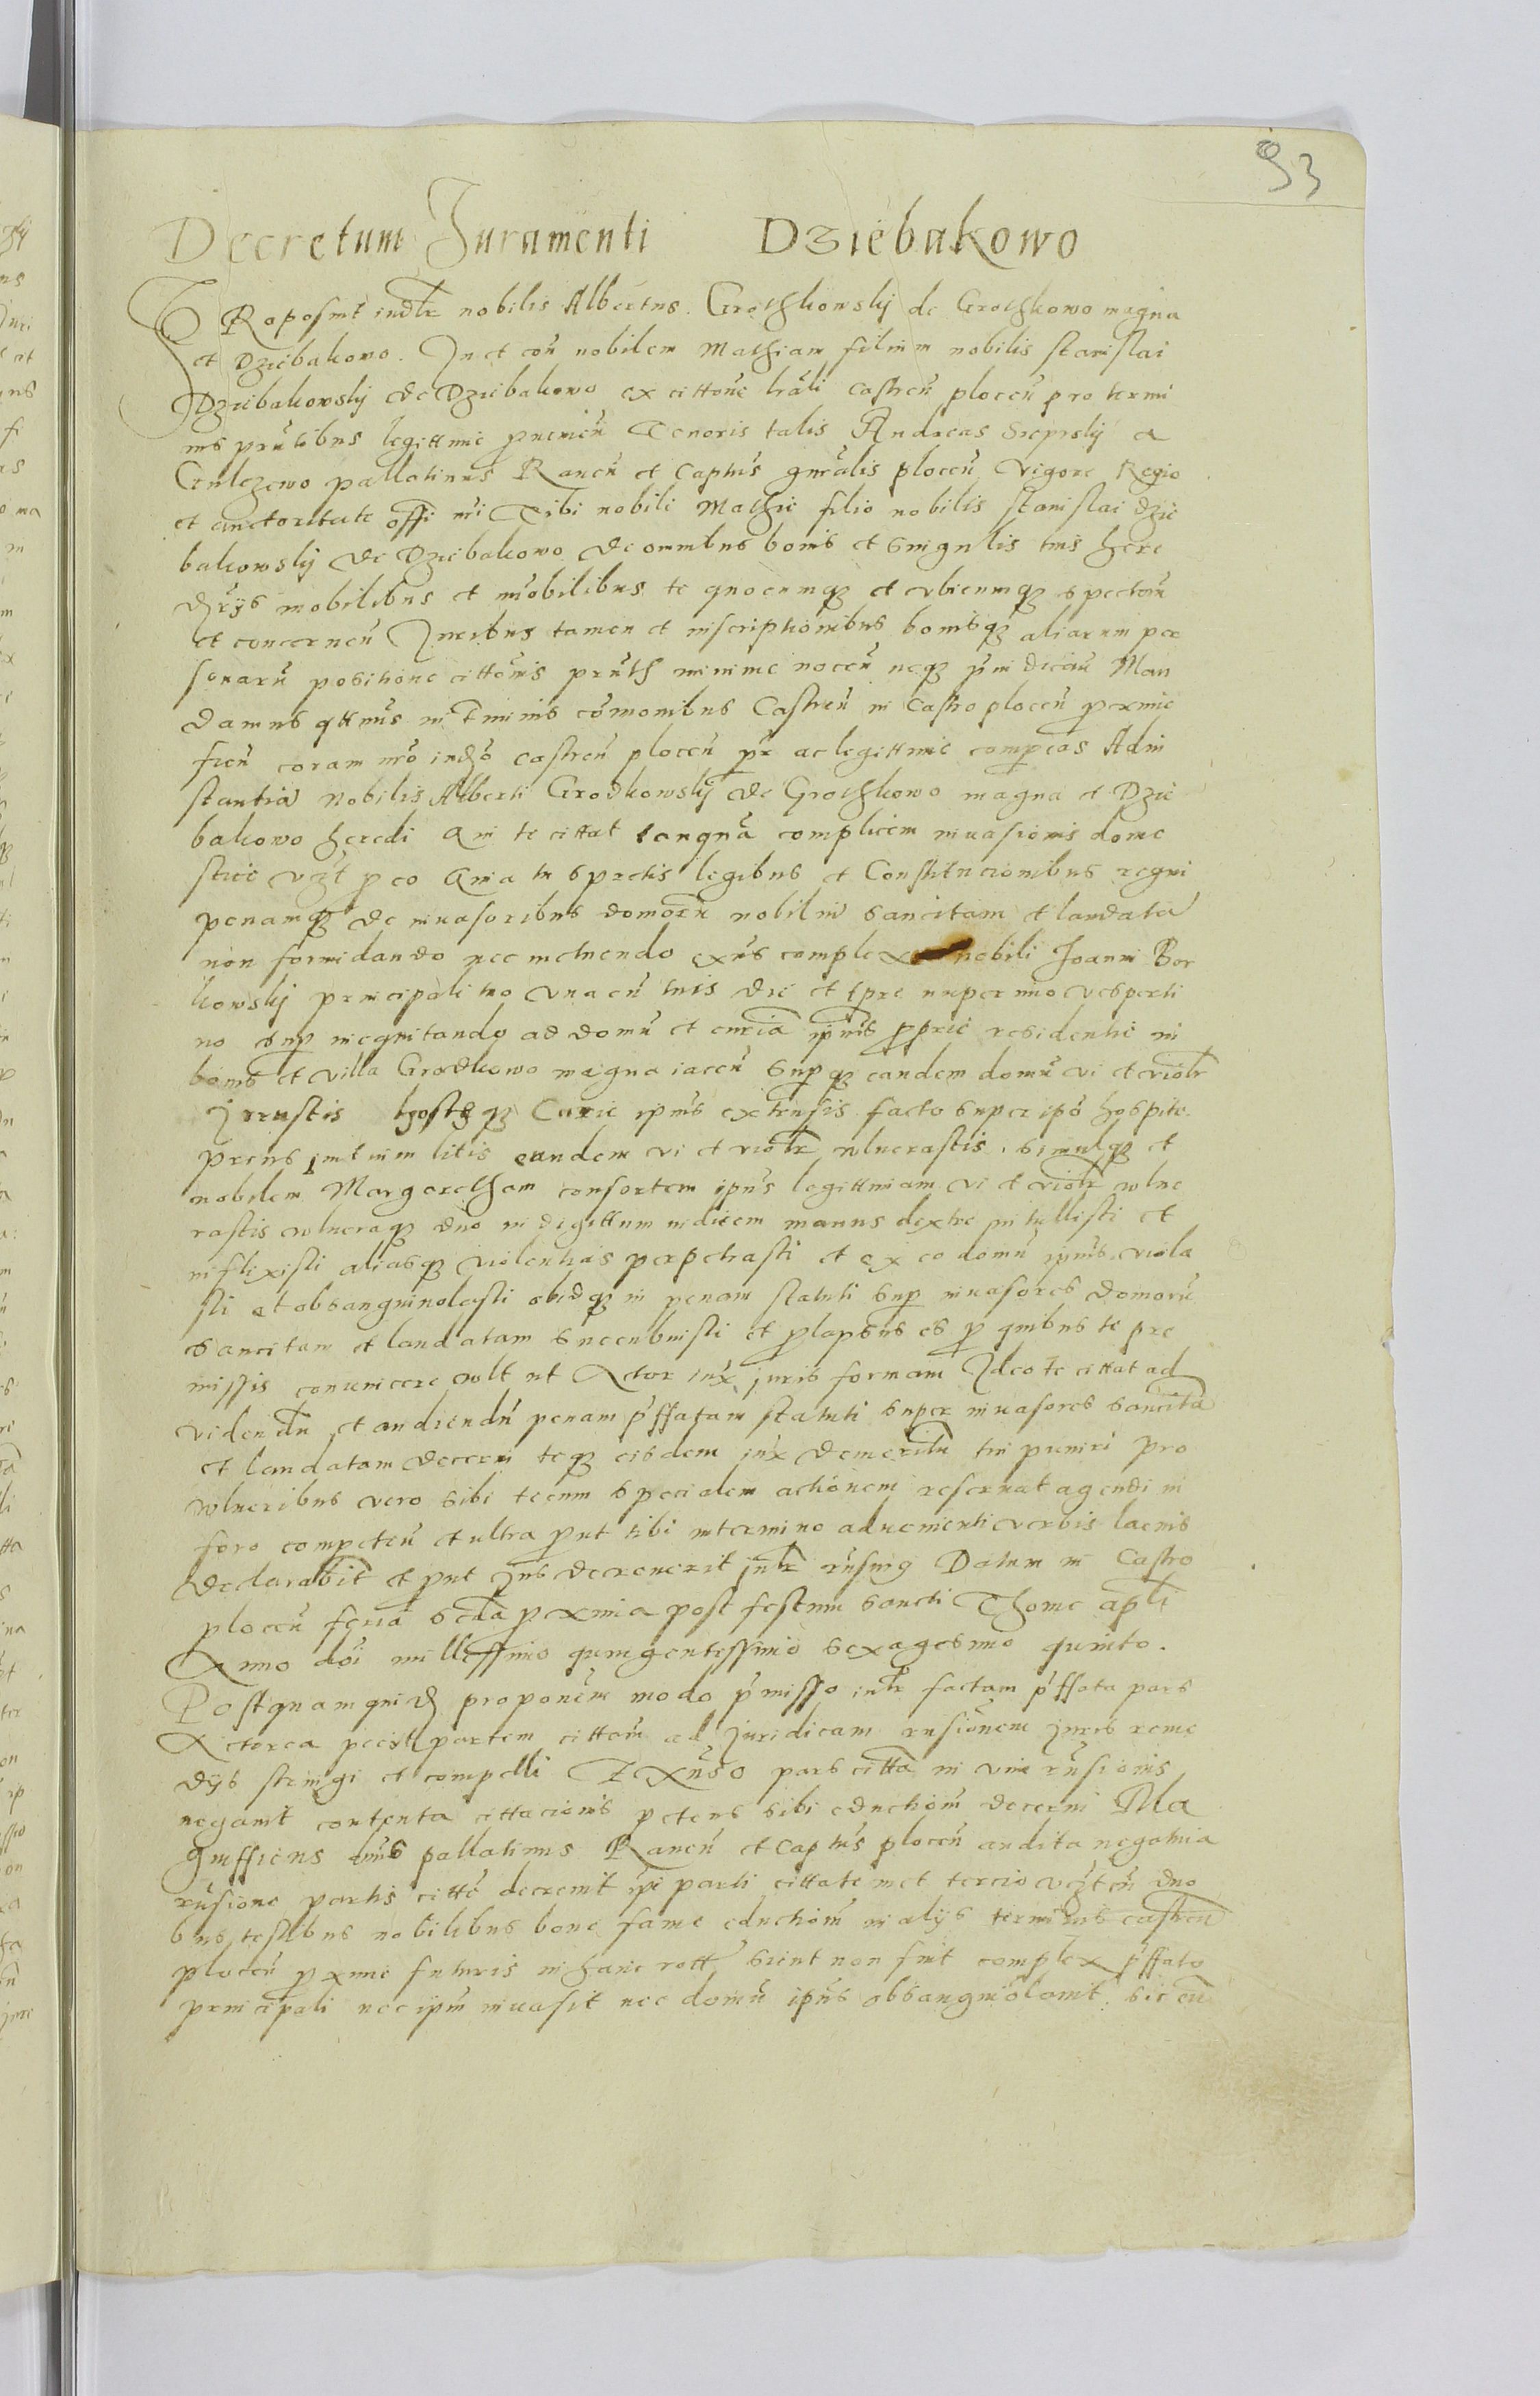 93
Decretum Juramenti Dziebakowo
PRoposuit iudlr nobilis Albertus Grothkowskij de Grothkowo magna
et Dziebakowo. In et con nobilem Mathiam filium nobilis stanislai
Dziebakowskij de Dziebakowo ex cittone lrali castren plocen pro termi
nis prntibus legittime pnenien Tenoris talis Andreas Sieprskij a
Gulczewo pallatinus Raven et Captus gnralis plocen vigore Regio
et auctoritate offi mi Tibi nobili Mathie filio nobilis stanislai dzie
bakowskij de Dziebakowo de omnibus bonis et singulis tuis here
drijs mobilibus et imobilibus te quocumq et vbicumq spectan
et concernen Juribus tamen et inscriptionibus bonisq aliarum per
sonaru positione cittonis prnth minime nocen neq pindican Man
damus qttnus in Tminis comonibus Castren in Castro plocen pxime
fien coram nro indo castren plocen pr ac legittime compeas Ad in
stantia nobilis Alberti Grodkowskij de Grothkowo magna et Dzie
bakowo heredi Qui te cittat tanqua complicem inuasionis dome
stice vzt p eo Quia tu spretis legibus et Constitucionibus regni
penamq de inuasoribus domoru nobiliu sancitam et laudata
non formidando nec metuendo exns complex nobili Joanni Bor
kowskij principali tuo vna cu tuis die et tpre nuper imo vesperti
no sup inequitando ad domu et curia ipius pprie residentie in
bonis et villa Grodkowo magna iacen supq eandem domu vi et violr
Irruistis hosteq Curie ipius extensis facto super ipo hospite
prens imtium litis eundem vi et violr vlnerastis simulq et
nobilem Margaretham consortem ipius legittimam vi et violr vlne
rastis vlneraq duo in digittum indicem manus dextre intullisti et
inflixisti aliasq violentias perpetrasti et ex eo domu ipius viola
sti et obsanguinolasti obidq in penam statuti sup inuasores domoru
sancitam et laudatam succubuisti et plapsus es p quibus te pre
missis conuincere vult ut Actor iux juris formam Ideo te cittat ad
videndu et audiendu penam pffatam statuti super inuasores sancita
et laudatam decerni teq eisdem iux demeritu tui puniri pro
vlneribus vero sibi tecum specialem actionem reseruat agendi in
foro competen et ultra put tibi intermino aduenienti verbis lacius
declarabit et put Jus decreuerit jndr rusurg Datum in Castro
plocen feria scda pxima post festum sancti Thome apli
Anno doi millessimo quingentessimo sexagesimo quinto.
Postquam quid proponem modo pmisso indr factam pffata pars
Actorea peciit partem cittam ad Juridicam rnsionem Juris reme
dijs stringi et compelli Exuso pars citta in vim rnsionis
negauit contenta cittacionis petens sibi eductiom decerni Ma
gnifficus dnus pallatinus Raven et Captus plocen audita negatiua
rnsione partis citte decreuit ipi parti cittate met tercio vzt cu duo
bus testibus nobilibus bone fame eductiom in alijs terminis castren
plocen pxime futuris in hanc rott Sicut non fuit complex pffato
principali nec ipm inuasit nec domu ipius obsanguiolauit sic cu